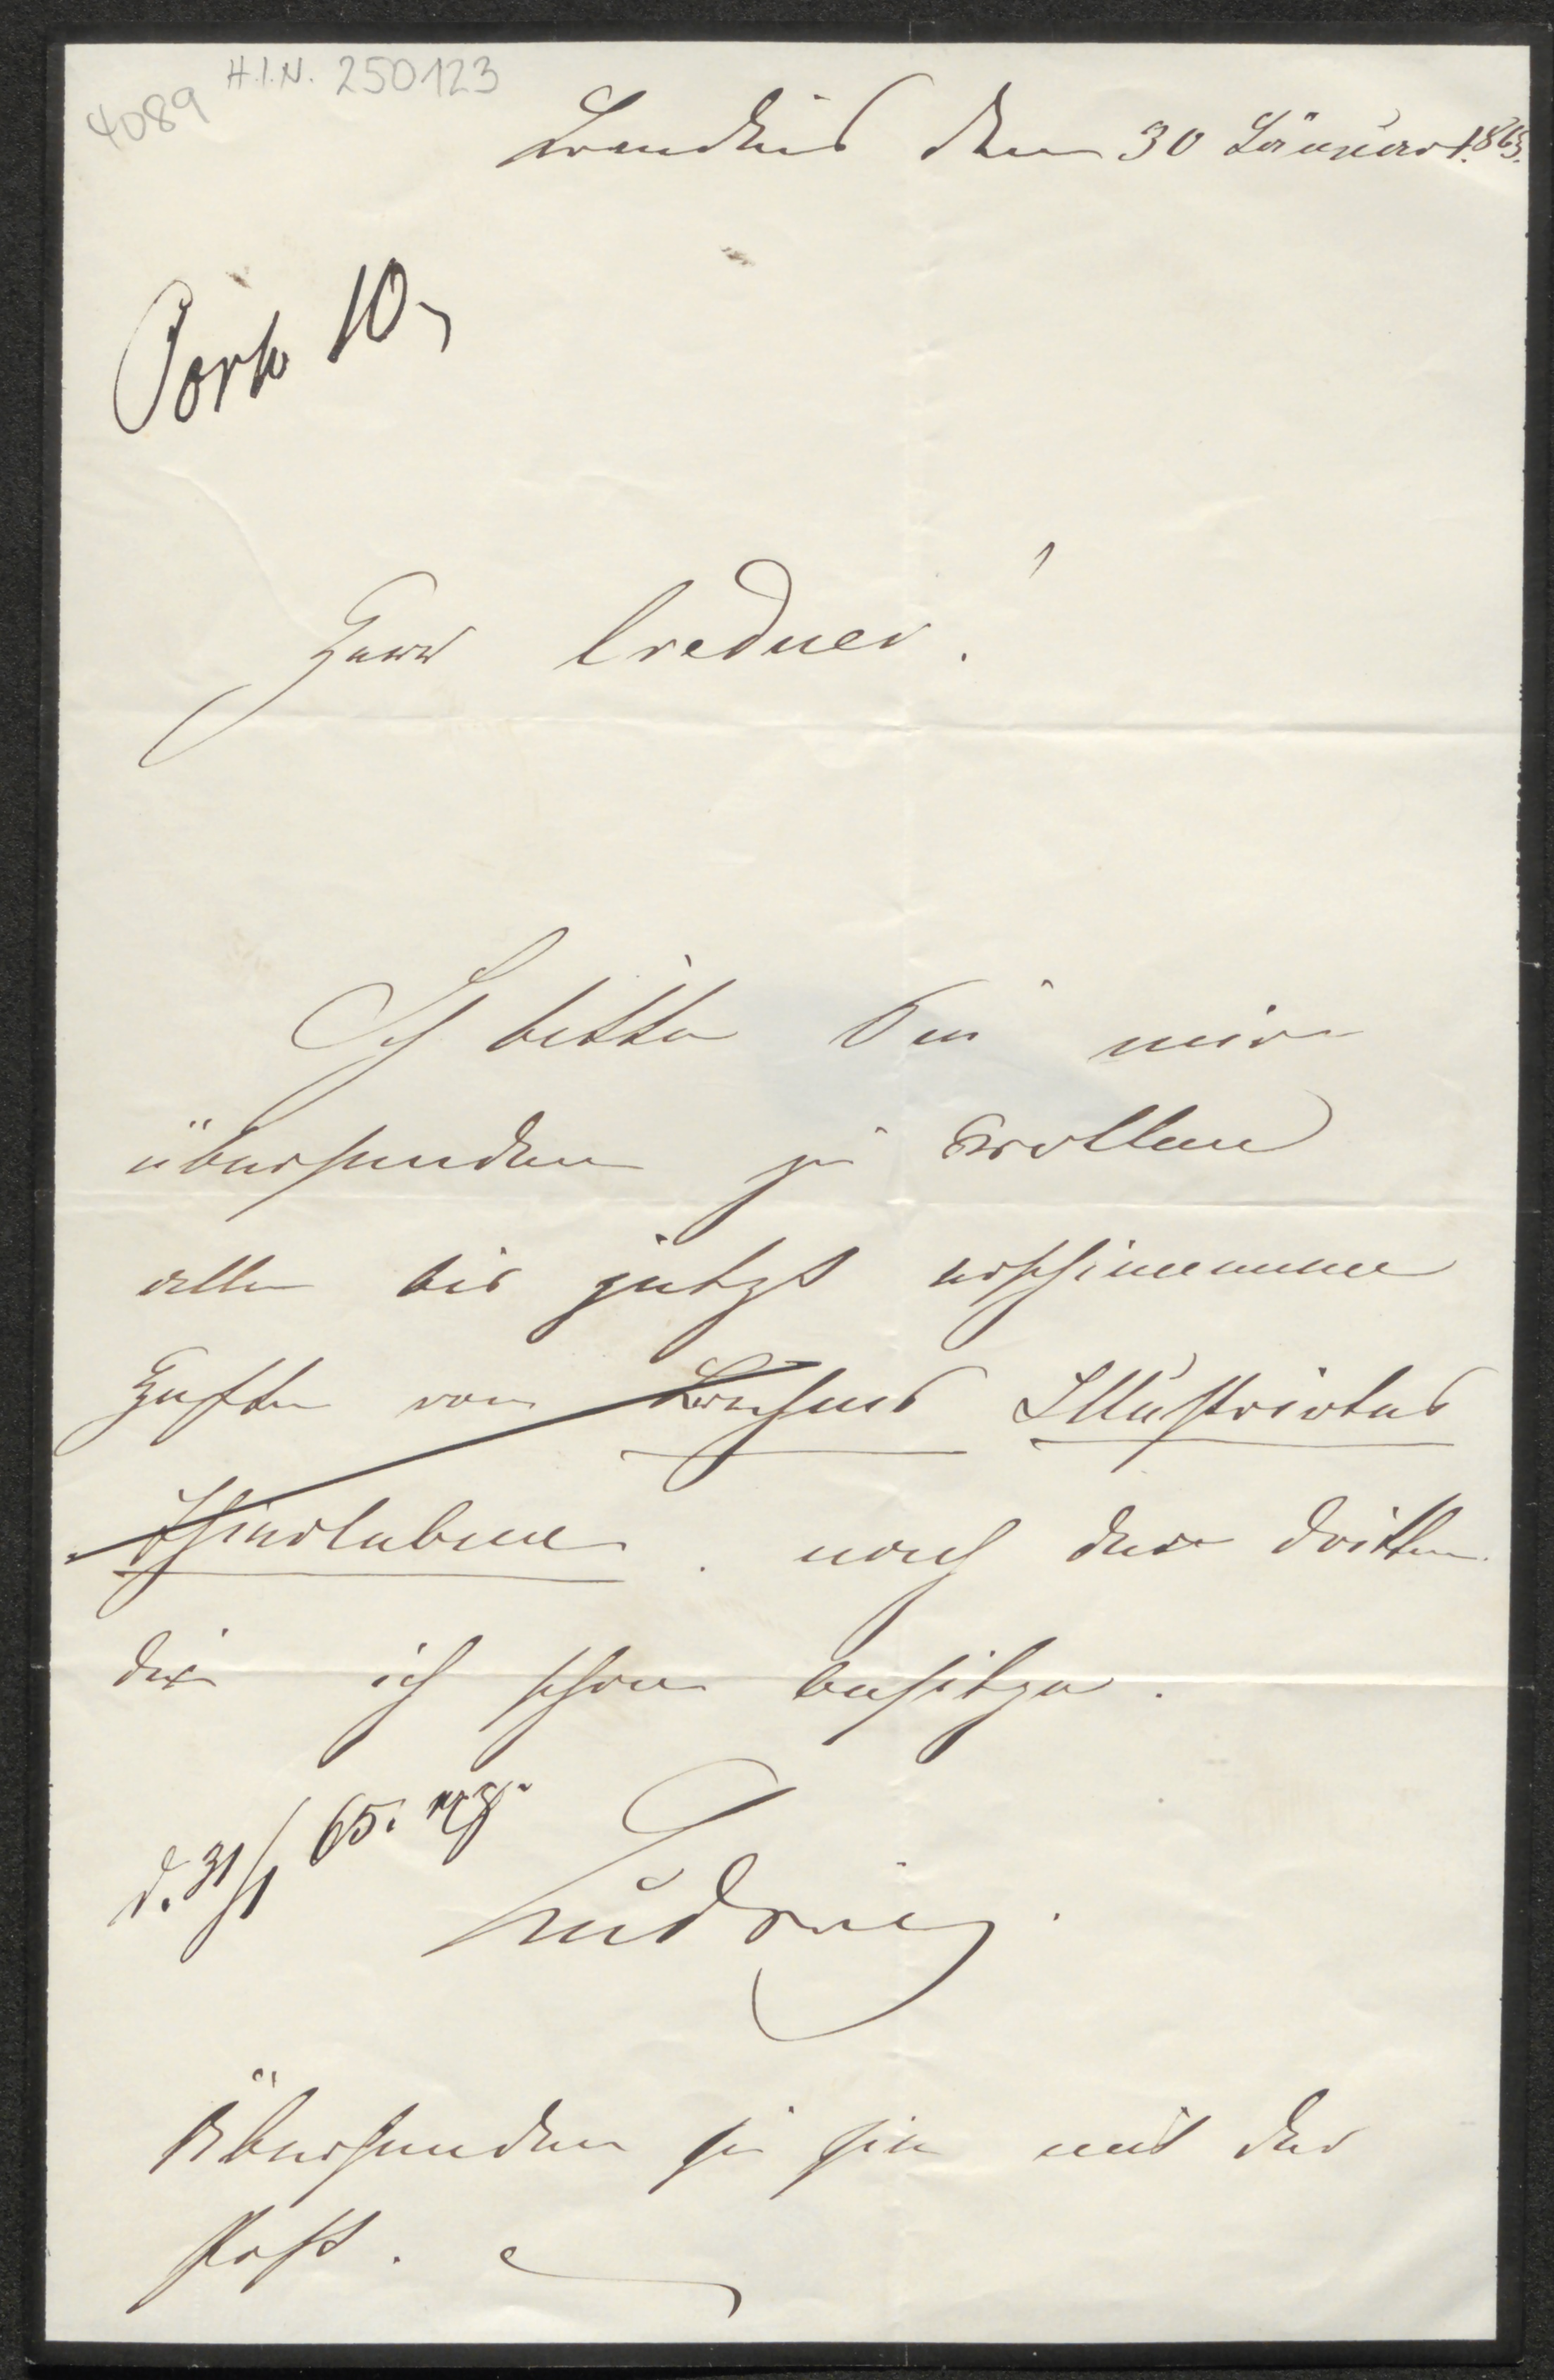 H.I.N. 250123
4089
Brandeis den 30 Jänner 1865.
Porto 10
Herr Credner!
Ich bitte Sie mir
übersenden zu wollen
alle bis jetzt erschienenen
Hefte von Brehms Illustrirtes
Thierleben. nach der dritten
die ich schon besitze.
d. 31/1 65.
Ludwig.
Übersenden sie sie mit der
Post.